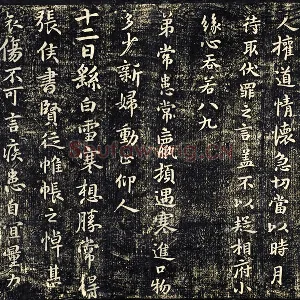 人擁道情懷急切當以時月
待取伏罪之言蓋不以疑相府小
緣心吞若八九
弟常患常羸頓遇寒進口物
多少新婦動止仰人
十二日縣白雪寒想勝常得
張侯書賢從帷帳之悼甚
哀傷不可言疾患自宜量力